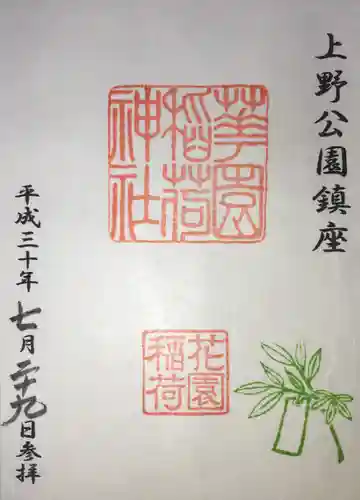 上野公園鎮座
華園
稲荷
神社
花園
稲荷
平成三十年七月二十九日参拝